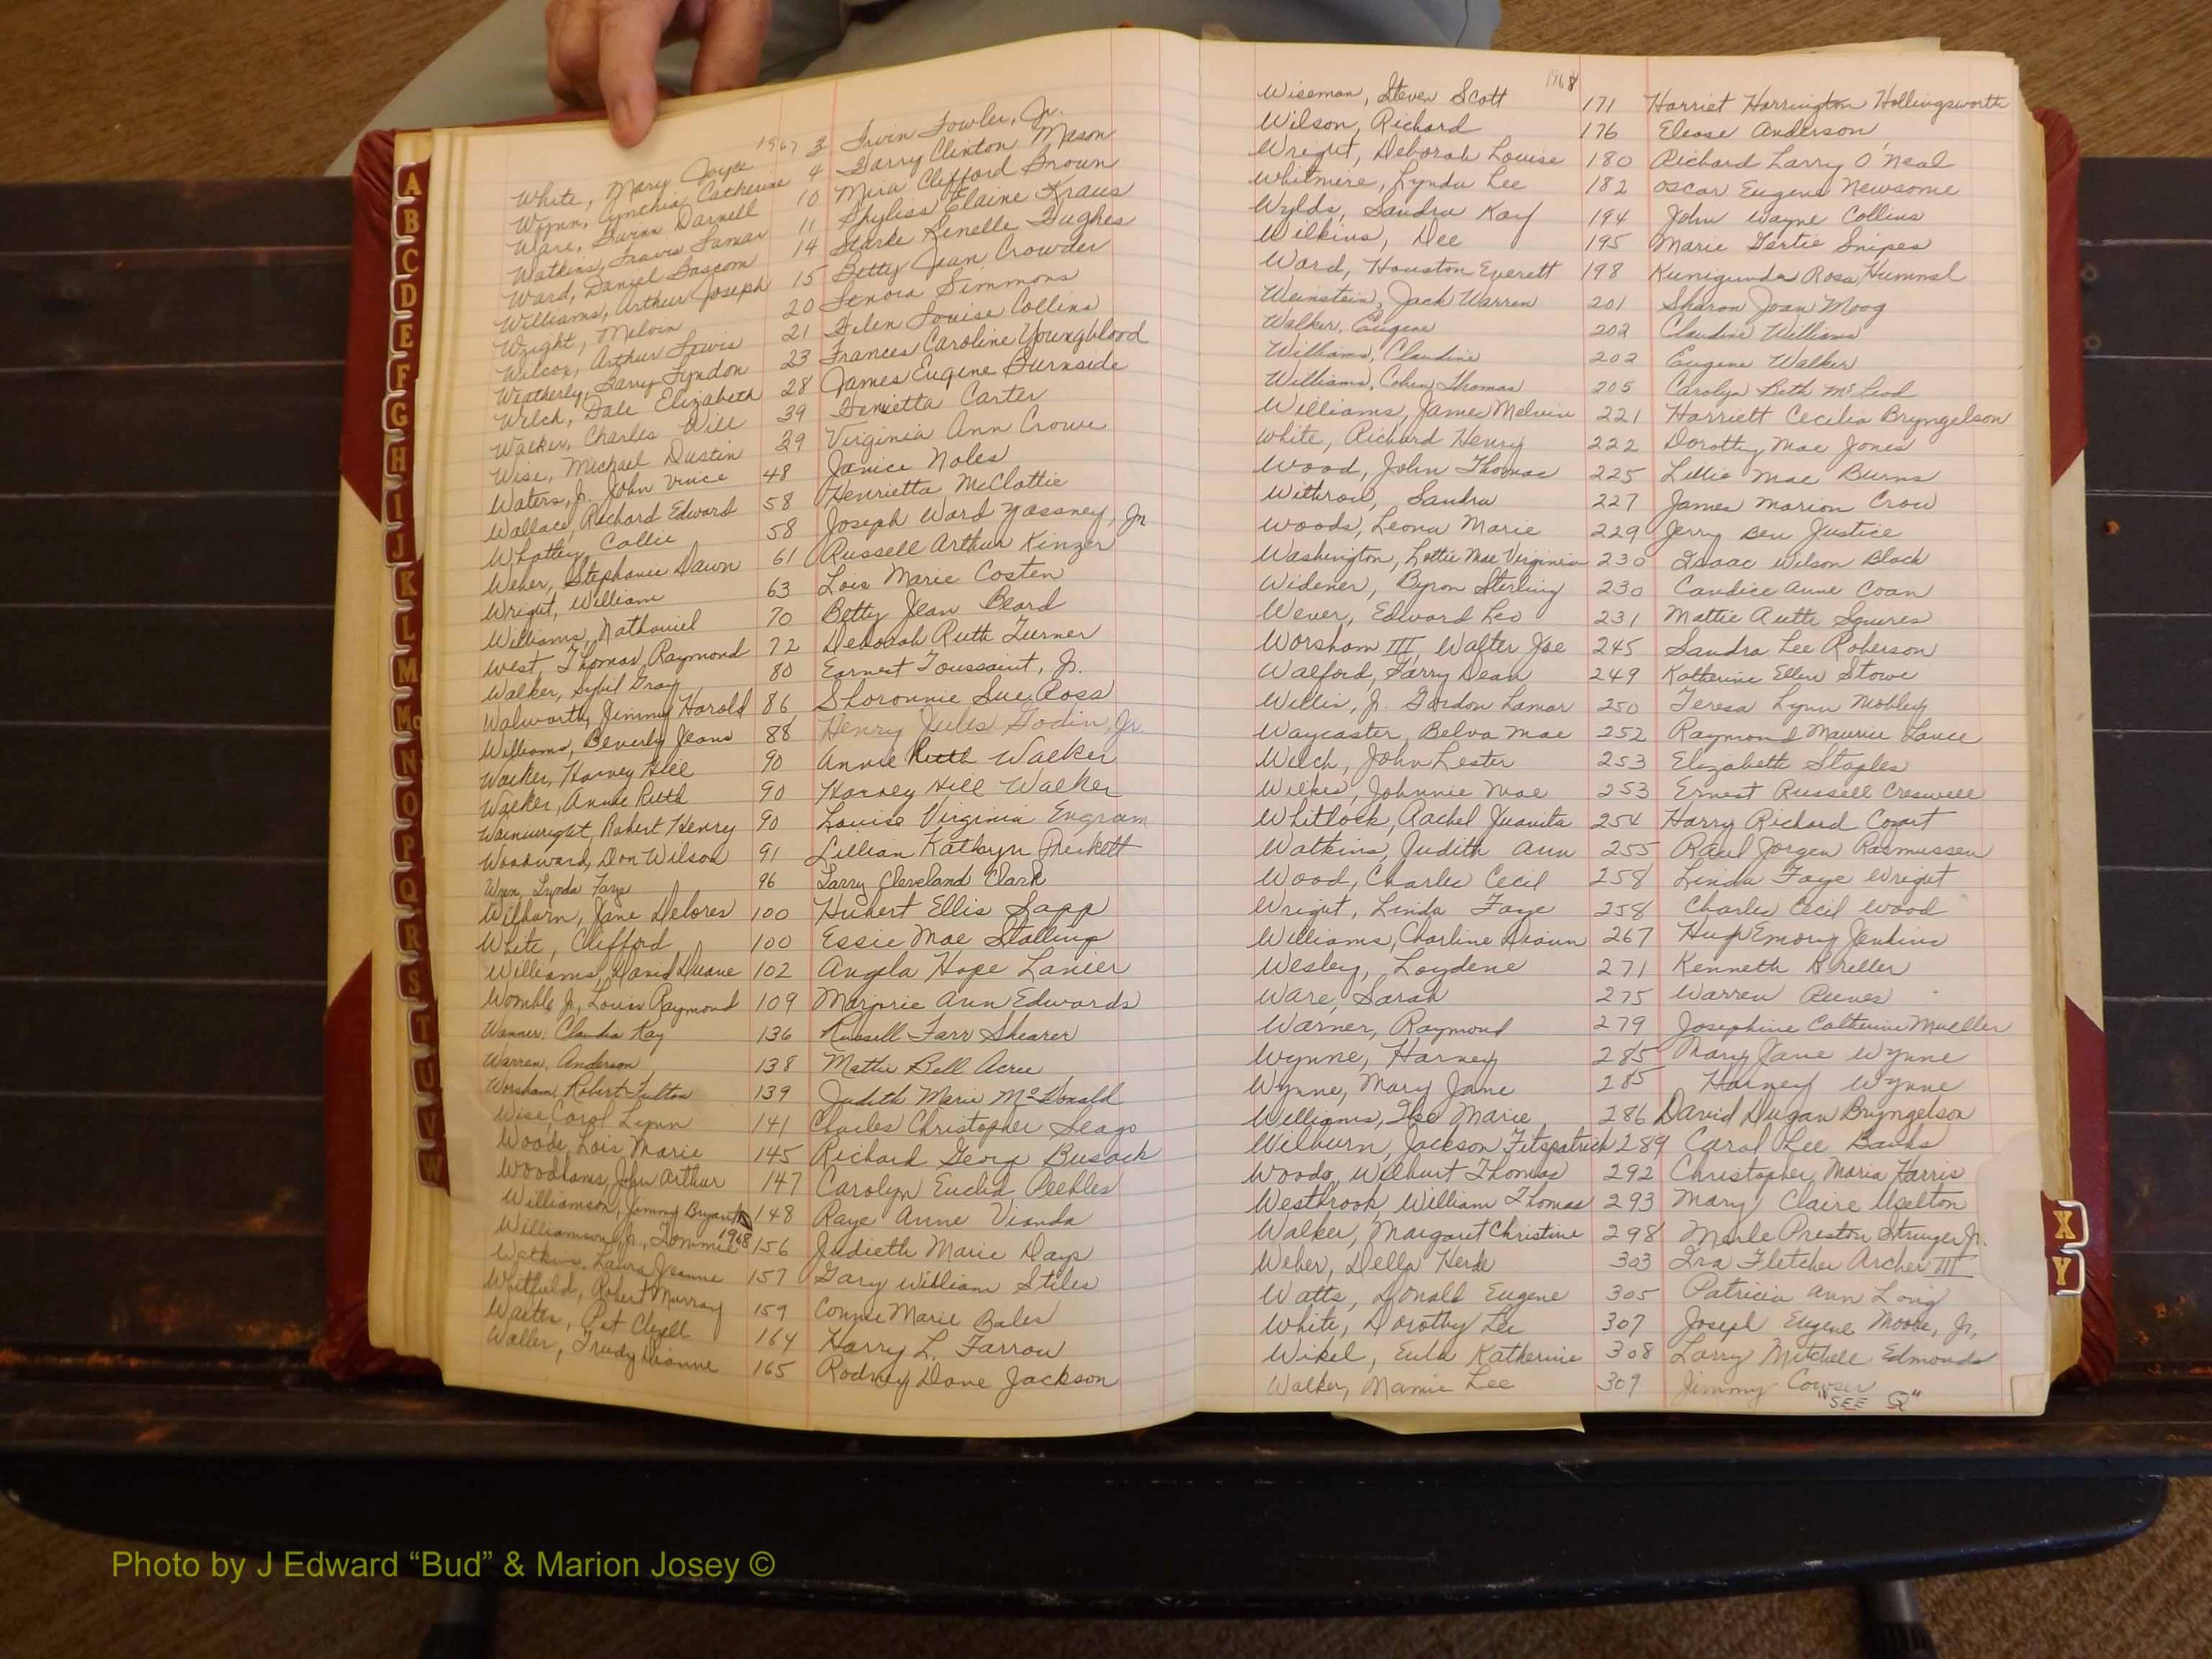 1967
White, Mary Joyce 3 Irvin Fowler, Jr.
Wynn, Cynthia Catherine 4 Harry Clinton Mason
Ware, Darnell 10 Mira Clifford Brown
Watkins, Travis Lamar 11 Phyliss Elaine Kraus
Ward, Daniel Bascom 14 Starke Renelle Hughes
Williams, Arthur Joseph 15 Betty Jean Crowder
Wright, Melvin 20 Lenora Simmons
Wilcox, Arthur Lewis 21 Helen Louise Collins
Weatherly, Larry Lyndon 23 Frances Caroline Youngblood
Welch, Dale Elizabeth 28 James Eugene Burnside
Walker, Charles Will 39 Henrietta Carter
Wise, Michael Dustin 39 Virginia Ann Crowe
Waters, Jr. John Vince 48 Janice Noles
Wallace, Richard Edward 58 Henrietta McClottie
Whatley, Callie 58 Joseph Ward Yassney, Jr
Weber, Stephanie Dawn 61 Russell Arthur Kinzer
Wright, William 63 Lois Marie Costen
Williams, Nathaniel 70 Betty Jean Beard
West, Thomas Raymond 72 Deborah Ruth Turner
Walker, Sybil Gray 80 Earnest Toussaint, Jr.
Walworth, Jimmy Harold 86 Shoronnie Sue Ross
Williams, Beverly Jeans 88 Henry Jules Godin, Jr.
Walker, Harvey Hill 90 Annie Ruth Walker
Walker, Annie Ruth 90 Harvey Hill Walker
Wainwright, Robert Henry 90 Louise Virginia Engram
Woodward, Don Wilson 91 Lillian Kathryn Prickett
Wren, Lynda Faye 96 Larry Cleveland Clark
Wilburn, Jane Delores 100 Hubert Ellis Sapp
White, Clifford 100 Essie Mae Stallings
Williams, David Duane 102 Angela Hope Lanier
Womble Jr., Louis Raymond 109 Marjorie Ann Edwards
Wanner, Claudia Kay 136 Russell Farr Shearer
Warren, Anderson 138 Mattie Bell Acree
Worsham, Robert Fulton 139 Judith Marie McDonald
Wise, Carol Lynn 141 Charles Christopher Seago
Woods, Lois Marie 145 Richard Georg Busack
Woodhams, John Arthur 147 Carolyn Euclid Peebles
Williamson, Jimmy Bryant 148 Raye Anne Vianda
1968
Williamson, Jr., Tommie 156 Judieth Marie Days
Watkins, Laura Jeanne 157 Gary William Stiles
Whitfield, Robert Murray 159 Connie Marie Bales
Waites, Pat Clyell 164 Harry L. Farrow
Waller, Trudy Dianne 165 Rodney Dane Jackson
1968
Wiseman, Steven Scott 171 Harriet Harrington Hollingsworth
Wilson, Richard 176 Eloise Anderson
Wright, Deborah Louise 180 Richard Larry O'Neal
Whitmire, Lynda Lee 182 Oscar Eugene Newsome
Wylds, Sandra Kay 194 John Wayne Collins
Wilkins, Dee 195 Marie Gertie Snipes
Ward, Houston Everett 198 Kunigunda Rosa Hummel
Weinstein, Jack Warren 201 Sharon Joan Moog
Walker, Eugene 202 Claudine Williams
Williams, Claudine 202 Eugene Walker
Williams, Cohen Thomas 205 Carolyn Beth McLeod
Williams, James Melvin 221 Harriett Cecilia Bryngelson
White, Richard Henry 222 Dorothy Mae Jones
Wood, John Thomas 225 Lillie Mae Burns
Withrow, Sandra 227 James Marion Crow
Woods, Leona Marie 229 Jerry Ben Justice
Washington, Lottie Mae Virginia 230 Isaac Wilson Black
Widener, Byron Sterling 230 Candice Anne Coan
Wever, Edward Leo 231 Mattie Ruth Squires
Worsham III, Walter Joe 245 Sandra Lee Roberson
Walford, Larry Dean 249 Katherine Ellen Stowe
Willis, Jr. Gordon Lamar 250 Teresa Lynn Mobley
Waycaster, Belva Mae 252 Raymond Maurice Lance
Welch, John Lester 253 Elizabeth Staples
Wilkes, Johnnie Mae 253 Ernest Russell Creswell
Whitlock, Rachel Juanita 254 Harry Richard Cozart
Watkins, Judith Ann 255 Raul Jorgen Rasmussen
Wood, Charles Cecil 258 Linda Faye Wright
Wright, Linda Faye 258 Charles Cecil Wood
Williams, Charline Diann 267 Hugh Emory Jenkins
Wesley, Loydene 271 Kenneth Kreller
Ware, Sarah 275 Warren Reeves
Warner, Raymond 279 Josephine Catherine Mueller
Wynne, Harney 285 Mary Jane Wynne
Wynne, Mary Jane 285 Harney Wynne
Williams, Marie 286 David Dugan Bryngelson
Wilburn, Jackson Fitzpatrick 289 Carol Lee Banks
Woods, Wilburt Thomas 292 Christopher Maria Harris
Westbrook, William Thomas 293 Mary Claire Uselton
Walker, Margaret Christine 298 Merle Preston Stringer Jr.
Weber, Della Herde 303 Ira Fletcher Archer III
Watts, Donald Eugene 305 Patricia Ann Long
White, Dorothy Lee 307 Joseph Eugene Moore, Jr.
Wikel, Eula Katherine 308 Larry Mitchell Edmonds
Walker, Mamie Lee 309 Jimmy Cowser
"SEE Q"
A
B
C
D
E
F
G
H
I
J
K
L
M
Mc
N
O
P
Q
R
S
T
U
V
W
X
Y
Photo by J Edward “Bud” & Marion Josey ©